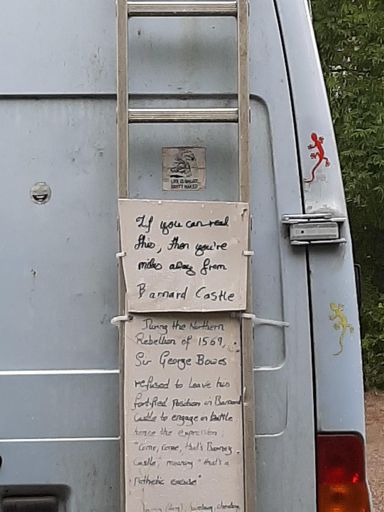 If you can read
this, then you're
miles away from
Barnard Castle
During the Northern
Rebellion of 1569,
Sir George Bowes
refused to leave his
fortified position in Barnard
Castle to engage in battle
hence the expression
"Come, come, that's Barney
Castle," meaning "that's a
pathetic excuse"